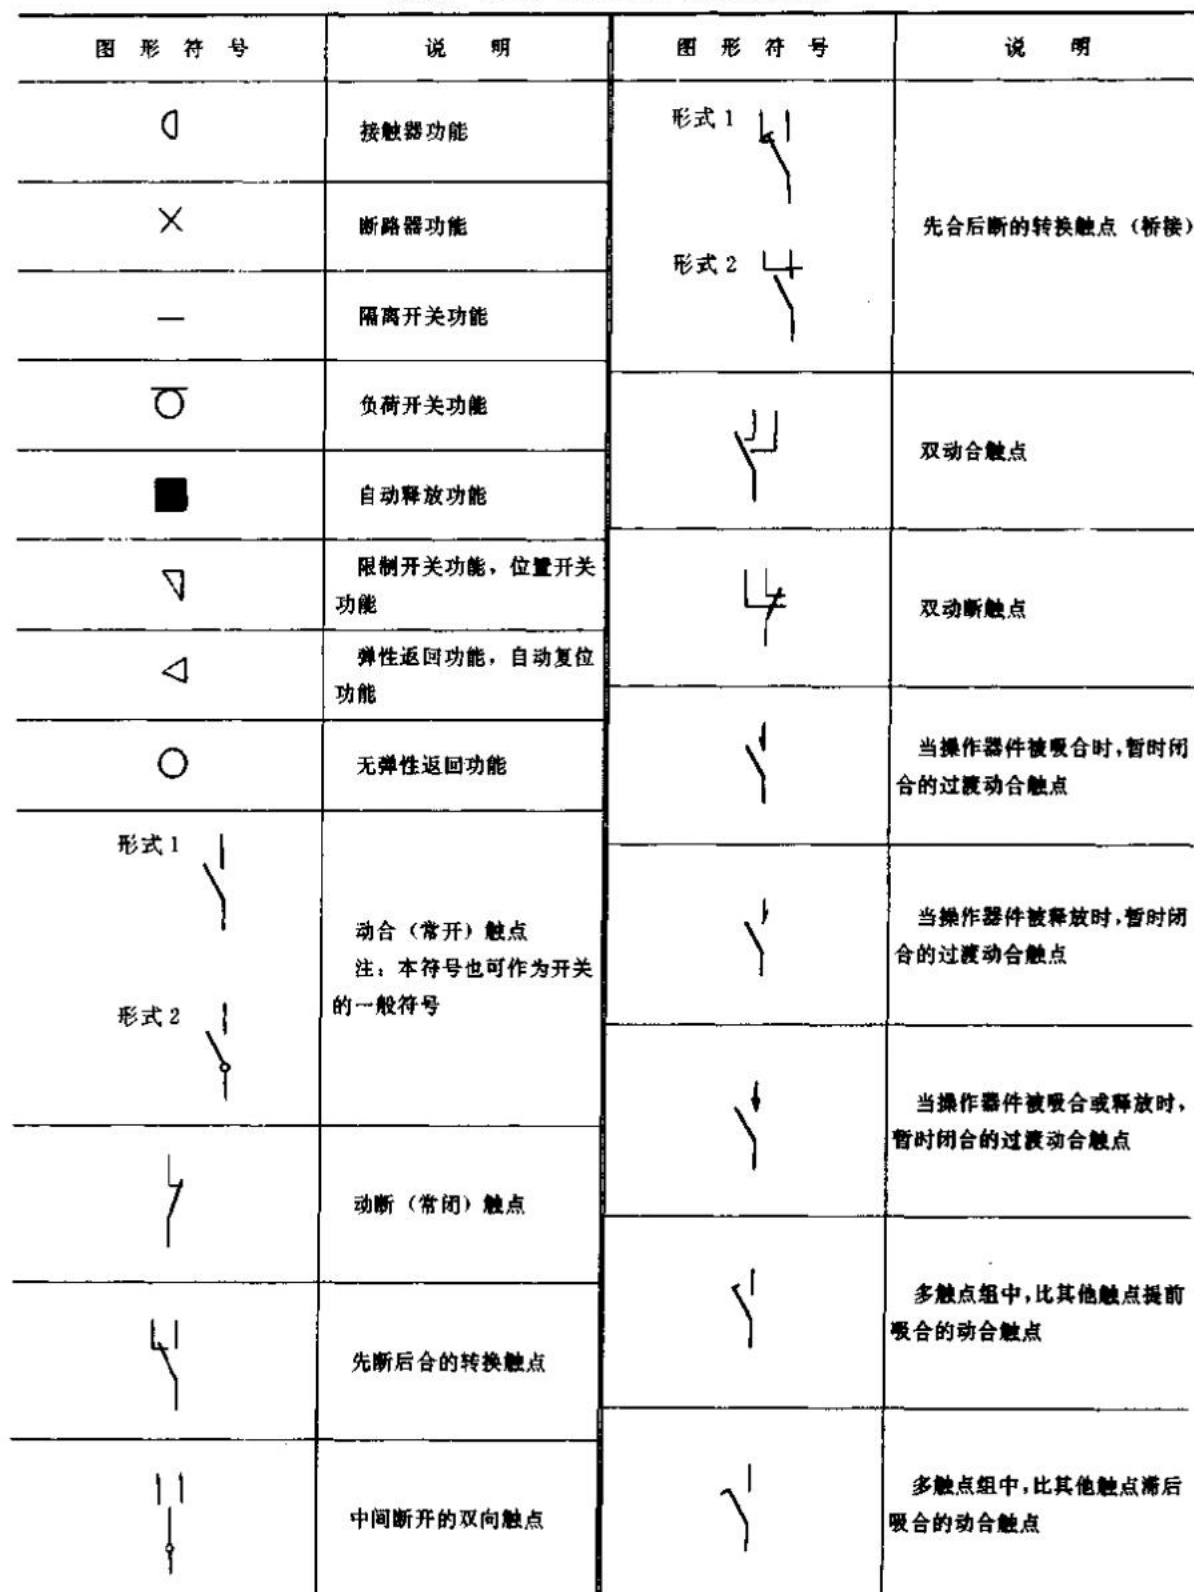 图形符号
说明
接触器功能
断路器功能
隔离开关功能
负荷开关功能
自动释放功能
限制开关功能，位置开关
功能
弹性返回功能，自动复位
功能
无弹性返回功能
形式 1
形式 2
动合（常开）触点
注：本符号也可作为开关
的一般符号
动断（常闭）触点
先断后合的转换触点
中间断开的双向触点
图形符号
说明
形式 1
形式 2
先合后断的转换触点（桥接）
双动合触点
双动断触点
当操作器件被吸合时，暂时闭
合的过渡动合触点
当操作器件被释放时，暂时闭
合的过渡动合触点
当操作器件被吸合或释放时，
暂时闭合的过渡动合触点
多触点组中，比其他触点提前
吸合的动合触点
多触点组中，比其他触点滞后
吸合的动合触点